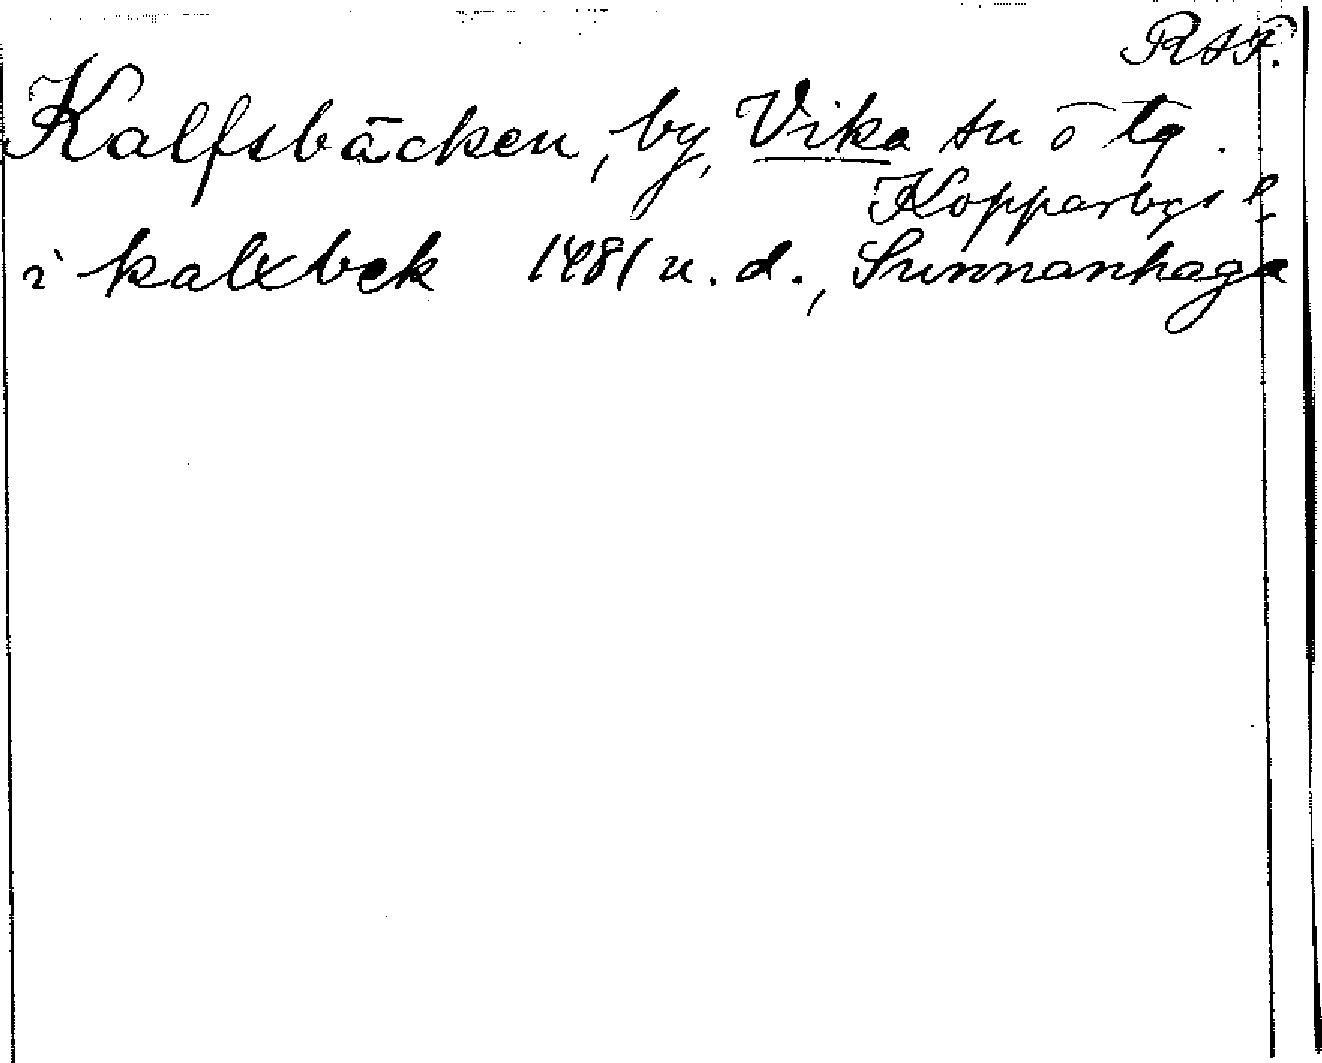 RAP.
Kalfsbäcken, by, Vika sn o tg.
Kopparbgs l.
i kalxbek 1481 u. d., Sunnanhaga